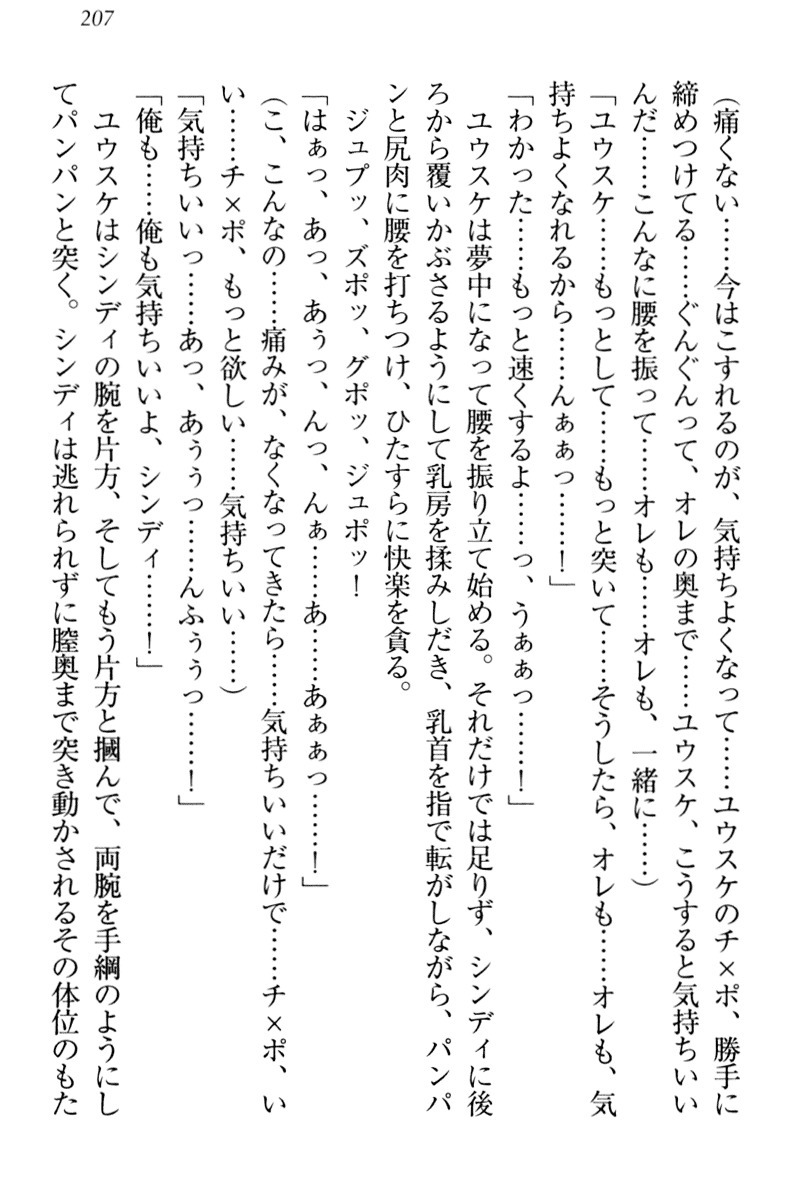 207
(痛くない……今はこすれるのが、気持ちよくなって……ユウスケのチ×ポ、勝手に
締めつけてる……ぐんぐんって、オレの奥まで……ユウスケ、こうすると気持ちいい
んだ……こんなに腰を振って……オレも……オレも、一緒に……)
「ユウスケ……もっとして……もっと突いて……そうしたら、オレも……オレも、気
持ちよくなれるから……んぁぁっ……！」
「わかった……もっと速くするよ……っ、うぁぁっ……！」
ユウスケは夢中になって腰を振り立て始める。それだけでは足りず、シンディに後
ろから覆いかぶさるようにして乳房を揉みしだき、乳首を指で転がしながら、パンパ
ンと尻肉に腰を打ちつけ、ひたすらに快楽を貪る。
ジュプッ、ズポッ、グポッ、ジュポッ！
「はぁっ、あっ、あぅっ、んっ、んぁ……あ……あぁぁっ……！」
(こ、こんなの……痛みが、なくなってきたら……気持ちいいだけで……チ×ポ、い
い……チ×ポ、もっと欲しい……気持ちいい……)
「気持ちいいっ……あっ、あぅぅっ……んふぅぅっ……！」
「俺も……俺も気持ちいいよ、シンディ……！」
ユウスケはシンディの腕を片方、そしてもう片方と摑んで、両腕を手綱のようにし
てパンパンと突く。シンディは逃れられずに膣奥まで突き動かされるその体位のもた